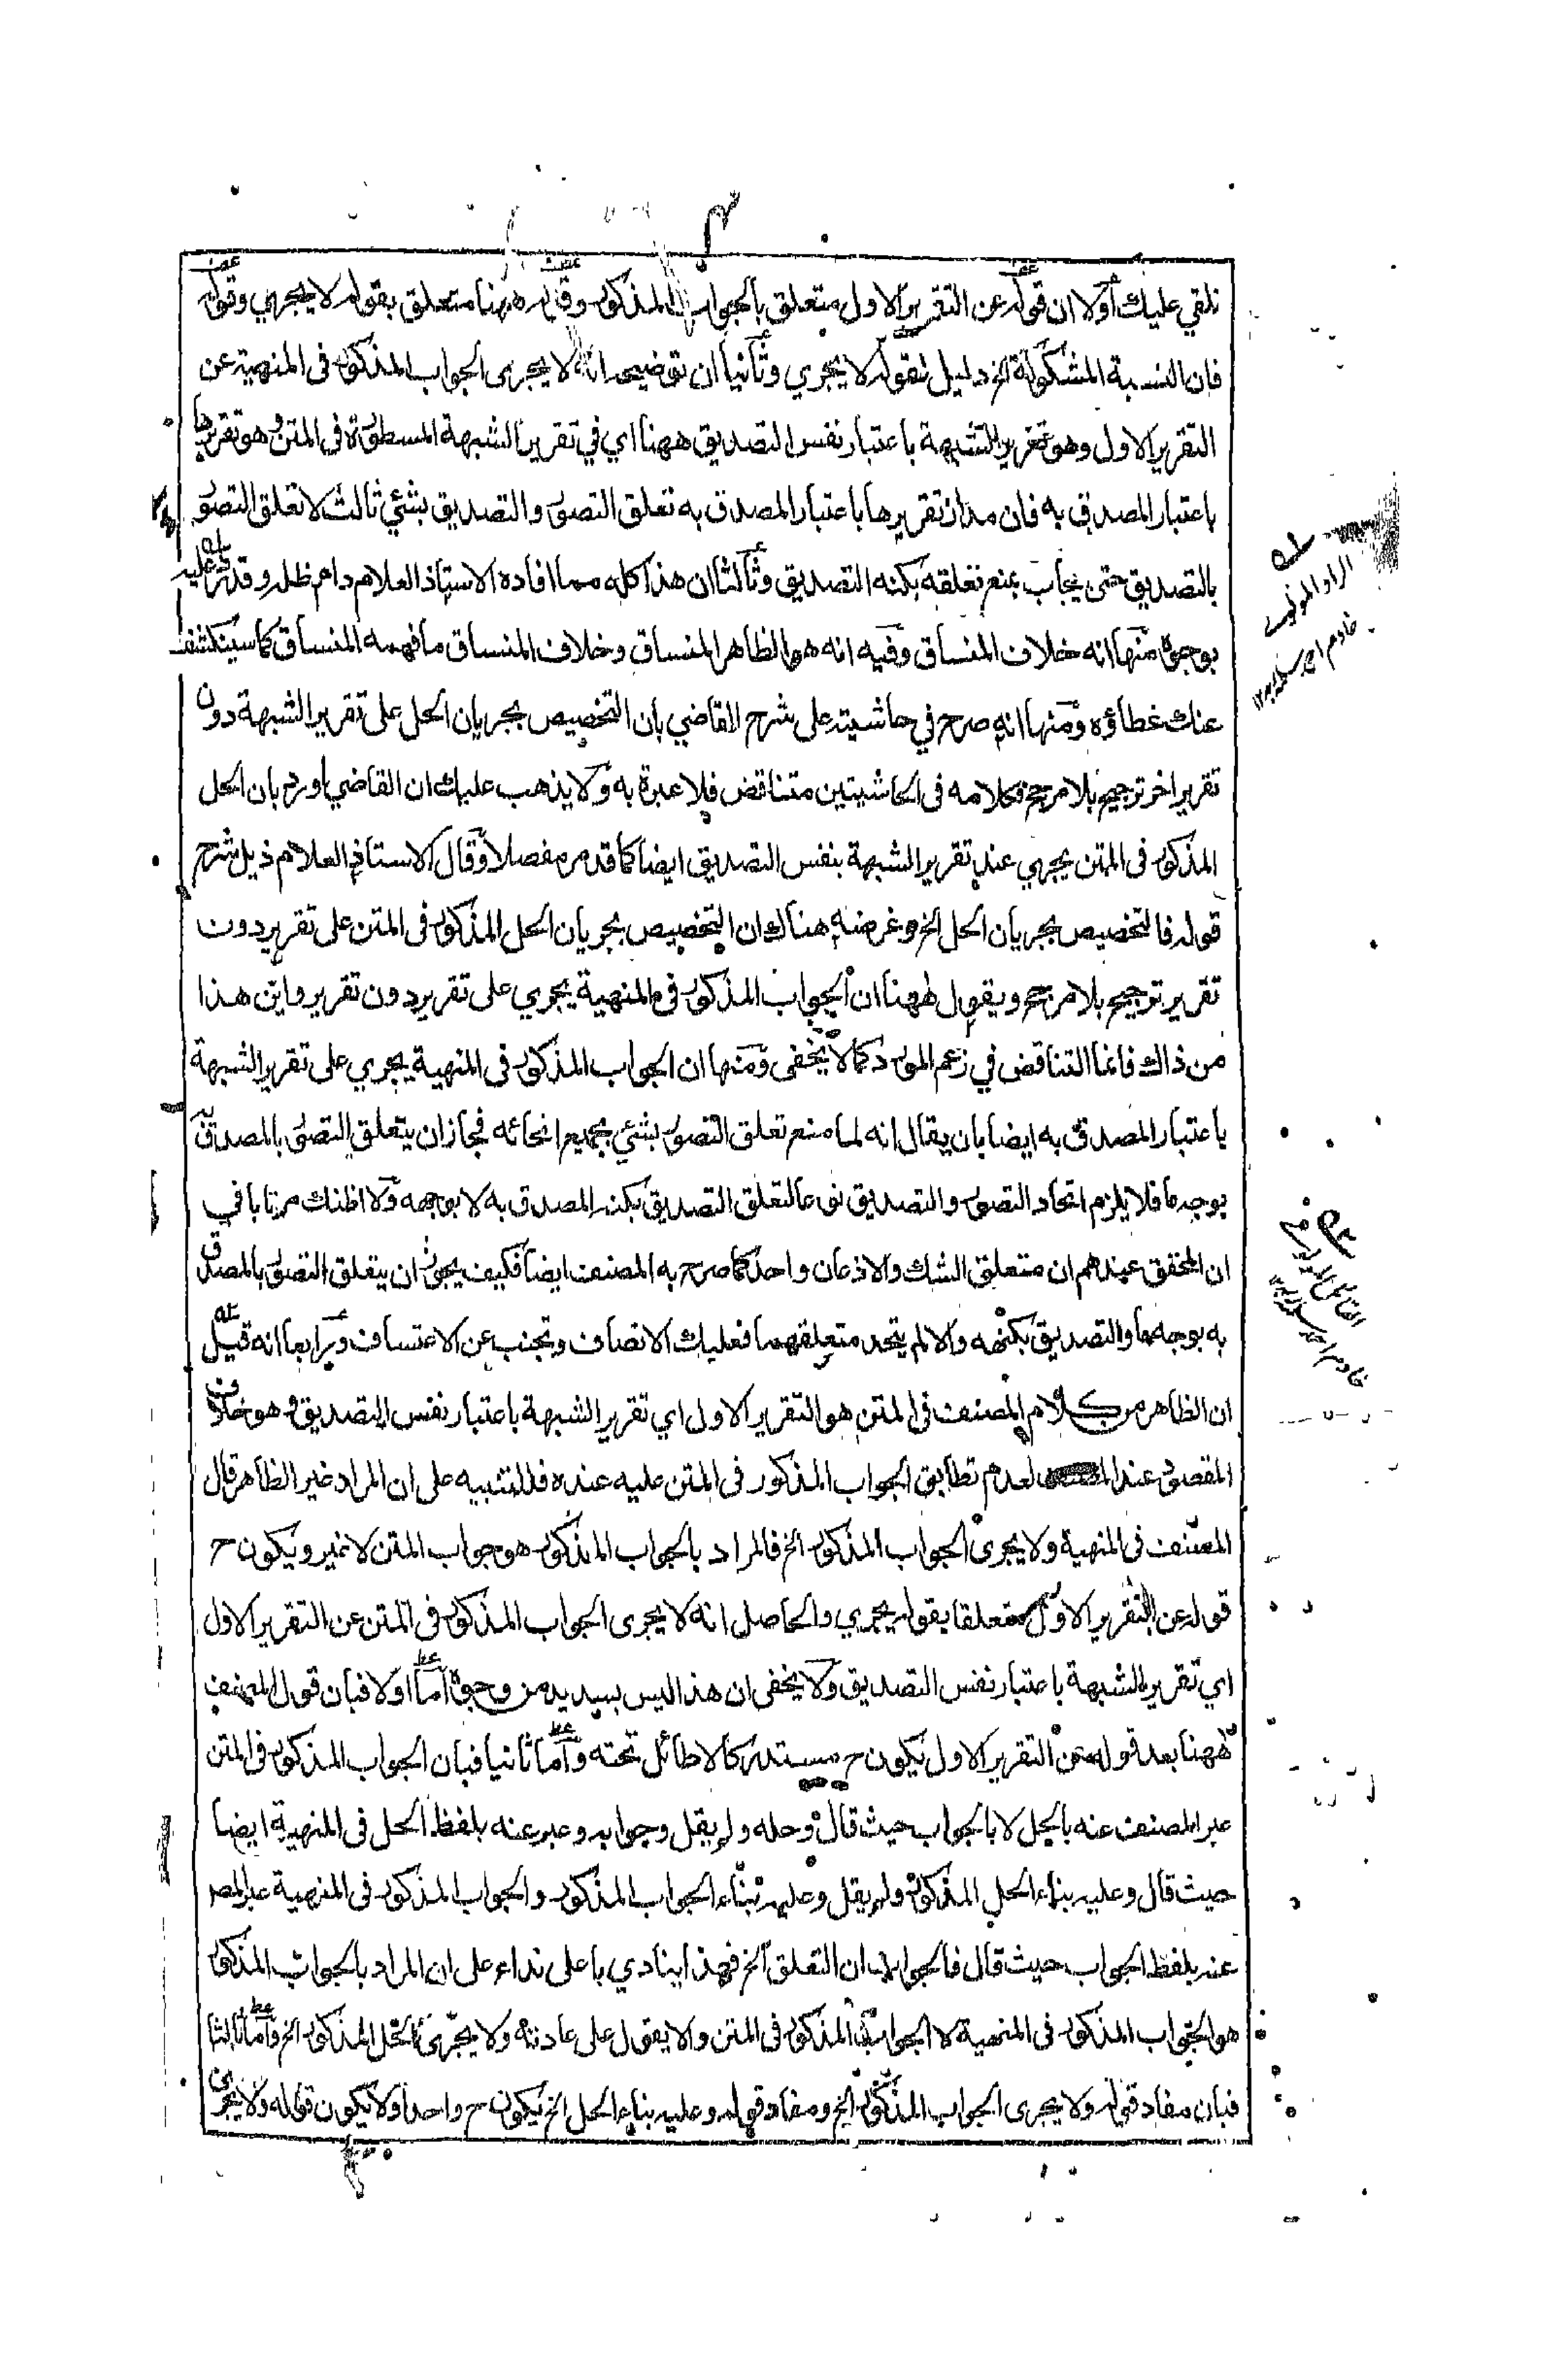 نلقي عليك اولا ان قوله عن التقرير الاول متعلق بالجواب المذكور وقوله ههنا متعلق بقوله لا يجري وقوله
فان النسبة المشكوكة الخ دليل لقوله لا يجري وثانيا ان توضيحه انه لا يجرى الجواب المذكور فى المنهية عن
التقرير الاول وهو تقرير الشبهة باعتبار نفس التصديق ههنا اي في تقرير الشبهة المسطورة فى المتن وهو تقريرها
باعتبار المصدق به فان مدار تقريرها باعتبار المصدق به تعلق التصور والتصديق بشئي ثالث لا تعلق التصور
بالتصديق حتى يجاب بمنع تعلقه بكنه التصديق وثالثا ان هذا كله مما افاده الاستاذ العلام دام ظله وقد رد عليه
بوجوه منها انه خلاف المنساق وفيه انه هو الظاهر المنساق وخلاف المنساق ما فهمه المنساق كما سينكشف
عنك غطاؤه ومنها انه صرح في حاشيته على شرح القاضي بان التخصيص بجريان الحل على تقرير الشبهة دون
تقرير اخر ترجيح بلا مرجح فكلامه فى الحاشيتين متناقض فلا عبرة به ولا يذهب عليك ان القاضي اورد بان الحل
المذكور فى المتن يجري عند تقرير الشبهة بنفس التصديق ايضا كما قد مر مفصلا وقال الاستاذ العلام ذيل شرح
قوله فالتخصيص بجريان الحل الخ وغرضه هناك ان التخصيص بجريان الحل المذكور فى المتن على تقرير دون
تقرير ترجيح بلا مرجح ويقول ههنا ان الجواب المذكور فى المنهية يجري على تقرير دون تقرير واين هذا
من ذاك فانما التناقض في زعم المورد كما لا يخفى ومنها ان الجواب المذكور فى المنهية يجري على تقرير الشبهة
باعتبار المصدق به ايضا بان يقال انه لما منع تعلق التصور بشئي بجميع انحائه فجاز ان يتعلق التصور بالمصدق به
بوجه ما فلا يلزم اتحاد التصور والتصديق نوعا لتعلق التصديق بكنه المصدق به لا بوجهه ولا اظنك مرتابا في
ان المحقق عندهم ان متعلق الشك والاذعان واحد كما صرح به المصنف ايضا فكيف يجوز ان يتعلق التصور بالمصدق
به بوجه ما والتصديق بكنهه والا لم يتحد متعلقهما فعليك الانصاف وتجنب عن الاعتساف ورابعا انه قيل
ان الظاهر من كلام المصنف فى المتن هو التقرير الاول اي تقرير الشبهة باعتبار نفس التصديق وهو خلاف
المقصود عند لعدم تطابق الجواب المذكور فى المتن عليه عنده فللتنبيه على ان المراد غير الظاهر قال
المصنف فى المنهية ولا يجرى الجواب المذكور الخ فالمراد بالجواب المذكور هو جواب المتن لا غير ويكون ح
قوله عن التقرير الاول متعلقا بقوله يجري والحاصل انه لا يجرى الجواب المذكور فى المتن عن التقرير الاول
اي تقرير الشبهة باعتبار نفس التصديق ولا يخفى ان هذا ليس بسديد من وجوه اما اولا فبان قول المصنف
ههنا بعد قوله عن التقرير الاول يكون ح مستدركا لا طائل تحته واما ثانيا فبان الجواب المذكور فى المتن
عبر المصنف عنه بالحل لا بالجواب حيث قال وحله ولم يقل وجوابه وعبر عنه بلفظ الحل فى المنهية ايضا
حيث قال وعليه بناء الحل المذكور ولم يقل وعليه بناء الجواب المذكور والجواب المذكور فى المنهية عبر المصـ
عنه بلفظ الجواب حيث قال فالجواب ان التعلق الخ فهذا ينادي باعلى نداء على ان المراد بالجواب المذكور
هو الجواب المذكور فى المنهية لا الجواب المذكور فى المتن والا يقول على عادته ولا يجرى الحل المذكور الخ واما ثالثا
فبان مفاد قوله ولا يجرى الجواب المذكور الخ ومفاد قوله وعليه بناء الحل الخ يكون ح واحدا ولا يكون قوله ولا يجرى
الراد المولوي
خادم احمد سلمه
القائل
خادم احمد